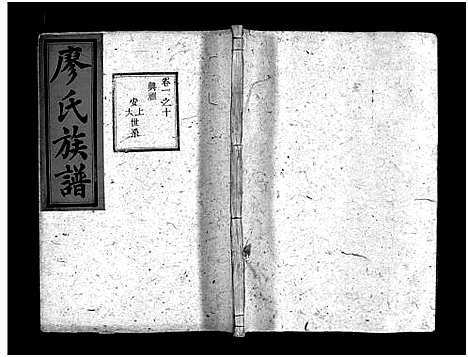 廖氏族譜
卷一之十
興祖
上世系
安大